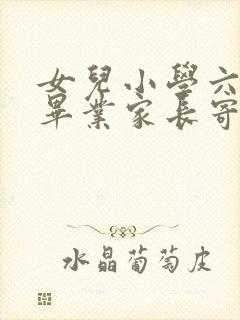 女兒小學六
畢業家長寄
水晶葡萄皮